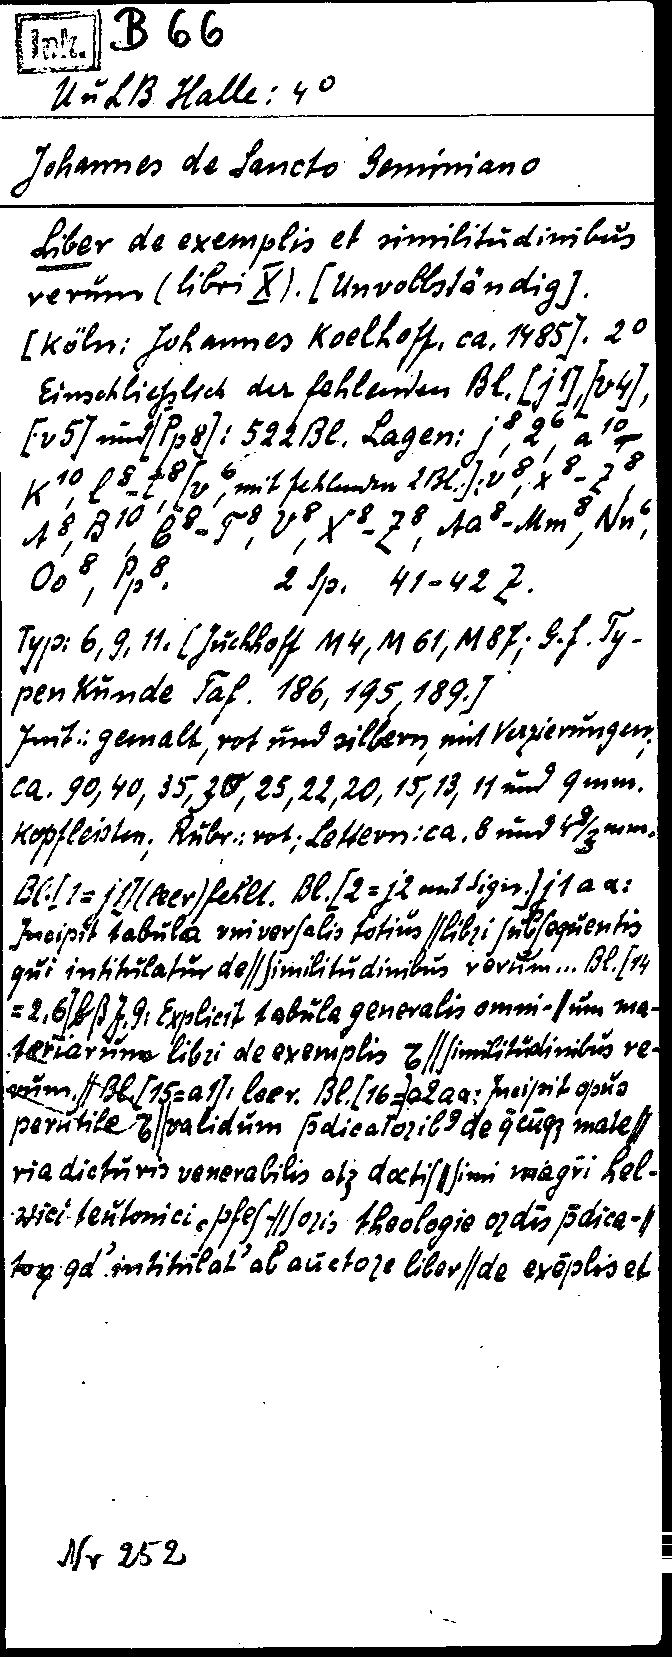 Ink. B 66
UuLB Halle: 4°
Johannes de Sancto Geminiano
Liber de exemplis et similitudinibus
rerum (libri X). [Unvollständig].
[Köln: Johannes Koelhoff, ca. 1485]. 2°
Einschließlich der fehlenden Bl. [j1], [v4],
[v5] und [Pp8]: 522 Bl. Lagen: j⁸, 2⁶, a¹⁰-
K¹⁰, l⁸-t⁸, [v⁶, mit fehlenden 2 Bl.]; v⁸, x⁸-z⁸,
A⁸, B¹⁰, C⁸-T⁸, V⁸, X⁸-Z⁸, Aa⁸-Mm⁸, Nn⁶,
Oo⁸, Pp⁸. 2 Sp. 41-42 Z.
Typ: 6, 9, 11. [Juchhoff M4, M61, M87; G.f. Ty-
penkunde Taf. 186, 195, 189.]
Init.: gemalt, rot und silbern, mit Verzierungen;
ca. 90, 40, 35, 30, 25, 22, 20, 15, 13, 11 und 9 mm.
Kopfleisten; Rubr.: rot; Lettern: ca. 8 und mm.
Bl. [1=j1] (leer) fehlt. Bl. [2=j2 mit Sign.] j1 a α:
Incipit tabula vniuersalis totius // libri subsequentis
qui intitulatur de // similitudinibus rerum... Bl. [14
=2,6] b β Z. 9: Explicit tabula generalis omni-// um ma-
teriarum libri de exemplis ⁊ // similitudinibus re-
rum. // Bl. [15=a1]: leer. Bl. [16=] a2 a α: Incipit opus
perutile ⁊ // validum p̄dicatoribꝰ de q̄cūqꝫ mate //
ria dicturis venerabilis atqꝫ doctis // simi magr̄i hel-
wici teutonici ꝓfes-// soris theologie ordīs p̄dica-//
toꝝ qd' intitulat' ab auctore liber // de exēplis et
Nr 252